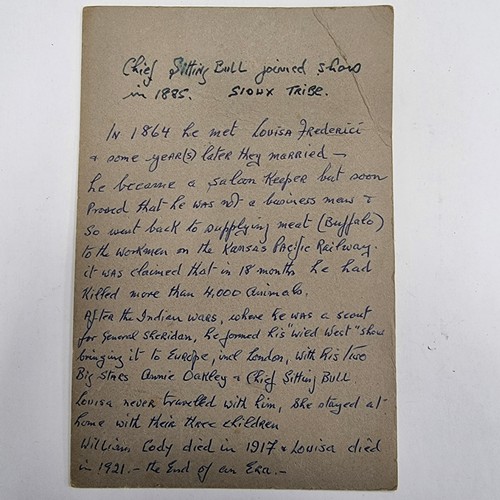 Chief Sitting Bull joined show
in 1885. SIOUX TRIBE.
IN 1864 he met Louisa Frederici
& some year(s) later they married –
he became a saloon keeper but soon
proved that he was not a business man &
so went back to supplying meat (Buffalo)
to the workmen on the Kansas Pacific Railway.
it was claimed that in 18 months he had
killed more than 4,000 animals.
After the Indian wars, where he was a scout
for General Sheridan, he formed his "Wild West" show
bringing it to Europe, incl London, with his two
Big stars Annie Oakley & Chief Sitting Bull.
Louisa never travelled with him, she stayed at
home with their three children
William Cody died in 1917 & Louisa died
in 1921. – the End of an Era. –